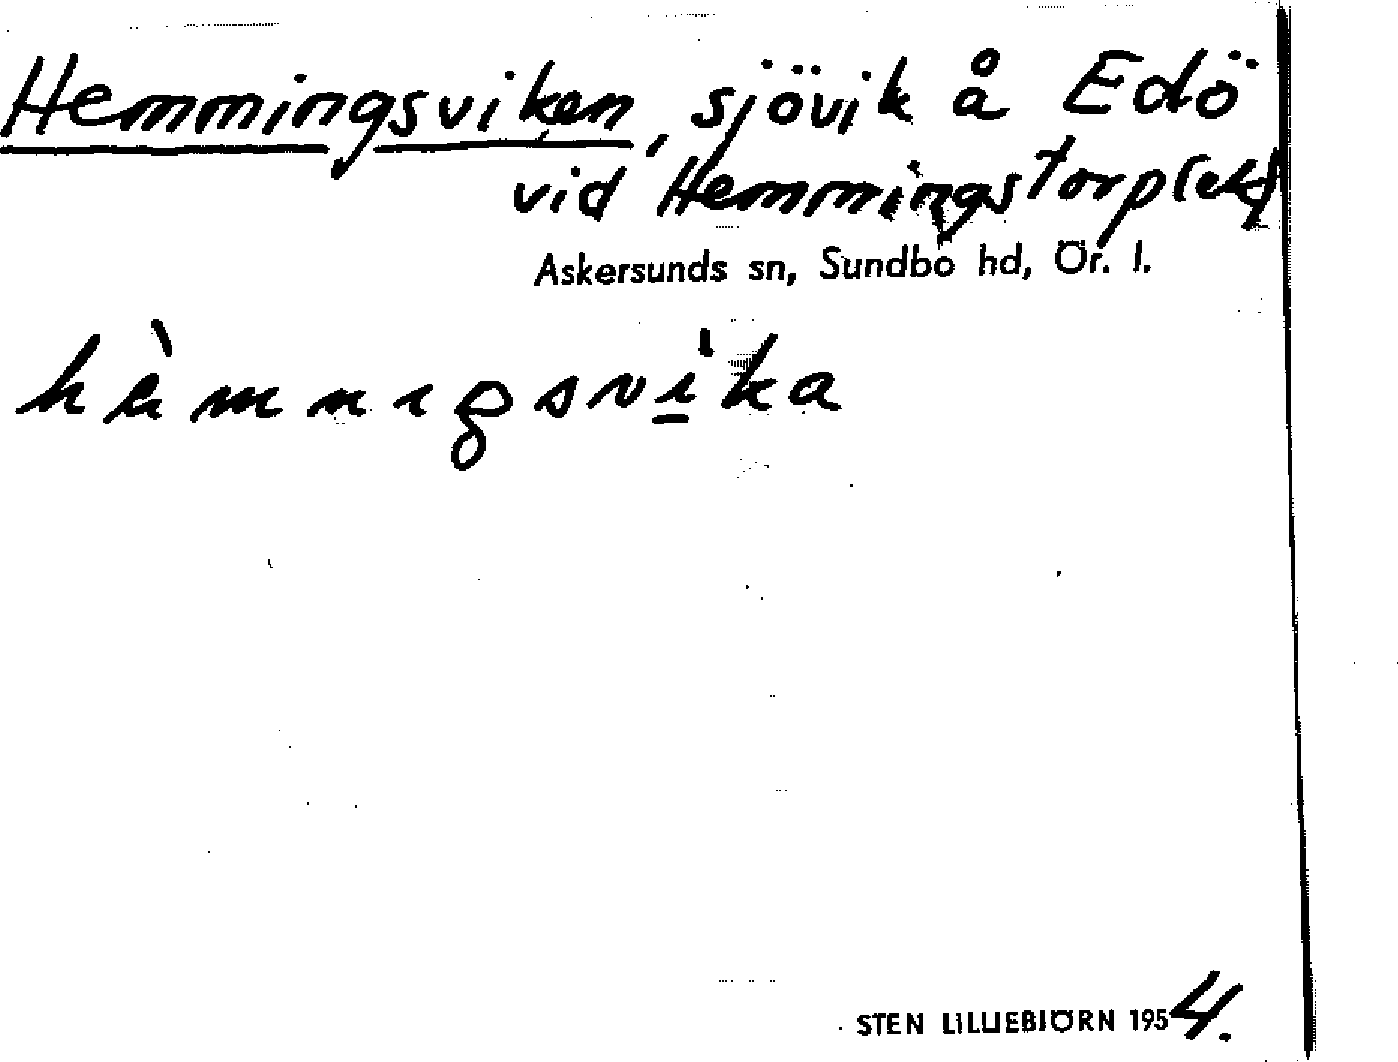 Hemmingsviken, sjövik å Edö
vid Hemmingstorp(ek)
Askersunds sn, Sundbo hd, Ör. l.
hèmnıgsvi̲ka
STEN LILLIEBJÖRN 1954.